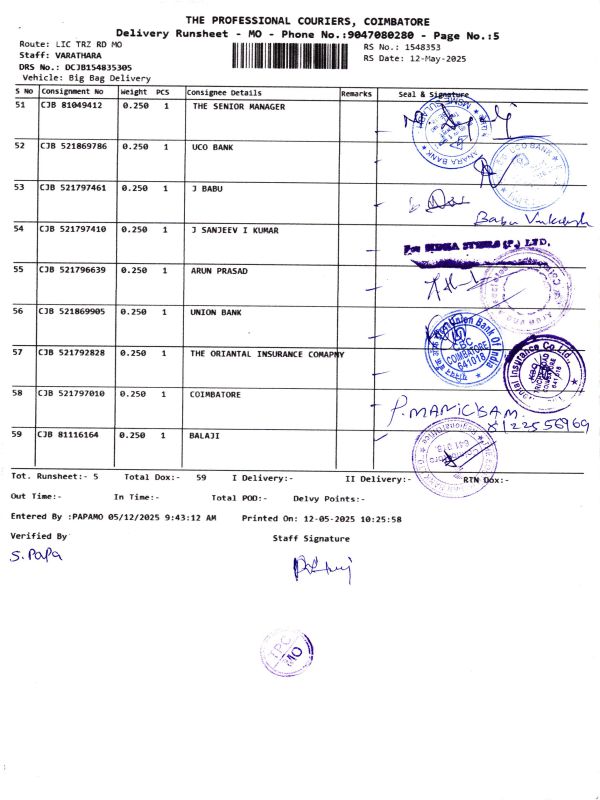 THE PROFESSIONAL COURIERS, COIMBATORE
Delivery Runsheet - MO - Phone No.:9047080280 - Page No.:5
Route: LIC TRZ RD MO
RS No.: 1548353
Staff: VARATHARA
RS Date: 12-May-2025
DRS No.: DCJB154835305
Vehicle: Big Bag Delivery
S No Consignment No Weight PCS Consignee Details Remarks Seal & Signature
51 CJB 81049412 0.250 1 THE SENIOR MANAGER
52 CJB 521869786 0.250 1 UCO BANK
UCO BANK
53 CJB 521797461 0.250 1 J BABU
Babu
54 CJB 521797410 0.250 1 J SANJEEV I KUMAR
(P.) LTD.
55 CJB 521796639 0.250 1 ARUN PRASAD
56 CJB 521869905 0.250 1 UNION BANK
Union Bank Of India
CBC
COIMBATORE
641018
57 CJB 521792828 0.250 1 THE ORIANTAL INSURANCE COMAPNY
Insurance Co Ltd.
58 CJB 521797010 0.250 1 COIMBATORE
P. MANICKAM
8122556969
59 CJB 81116164 0.250 1 BALAJI
Tot. Runsheet:- 5 Total Dox:- 59 I Delivery:- II Delivery:- RTN Dox:-
Out Time:- In Time:- Total POD:- Delvy Points:-
Entered By :PAPAMO 05/12/2025 9:43:12 AM Printed On: 12-05-2025 10:25:58
Verified By
Staff Signature
S. PaPa
TPC
MO